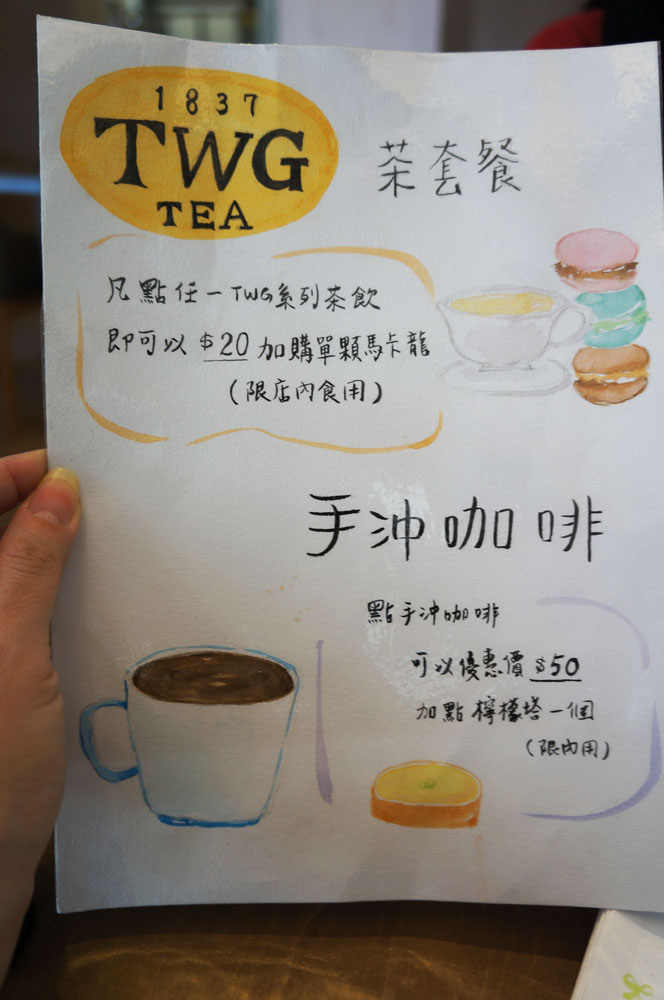 1837
TWG
TEA
茶套餐
凡點任一TWG系列茶飲
即可以 $20 加購單顆馬卡龍
(限店內食用)
手沖咖啡
點手沖咖啡
可以優惠價 $50
加點 檸檬塔一個
(限內用)